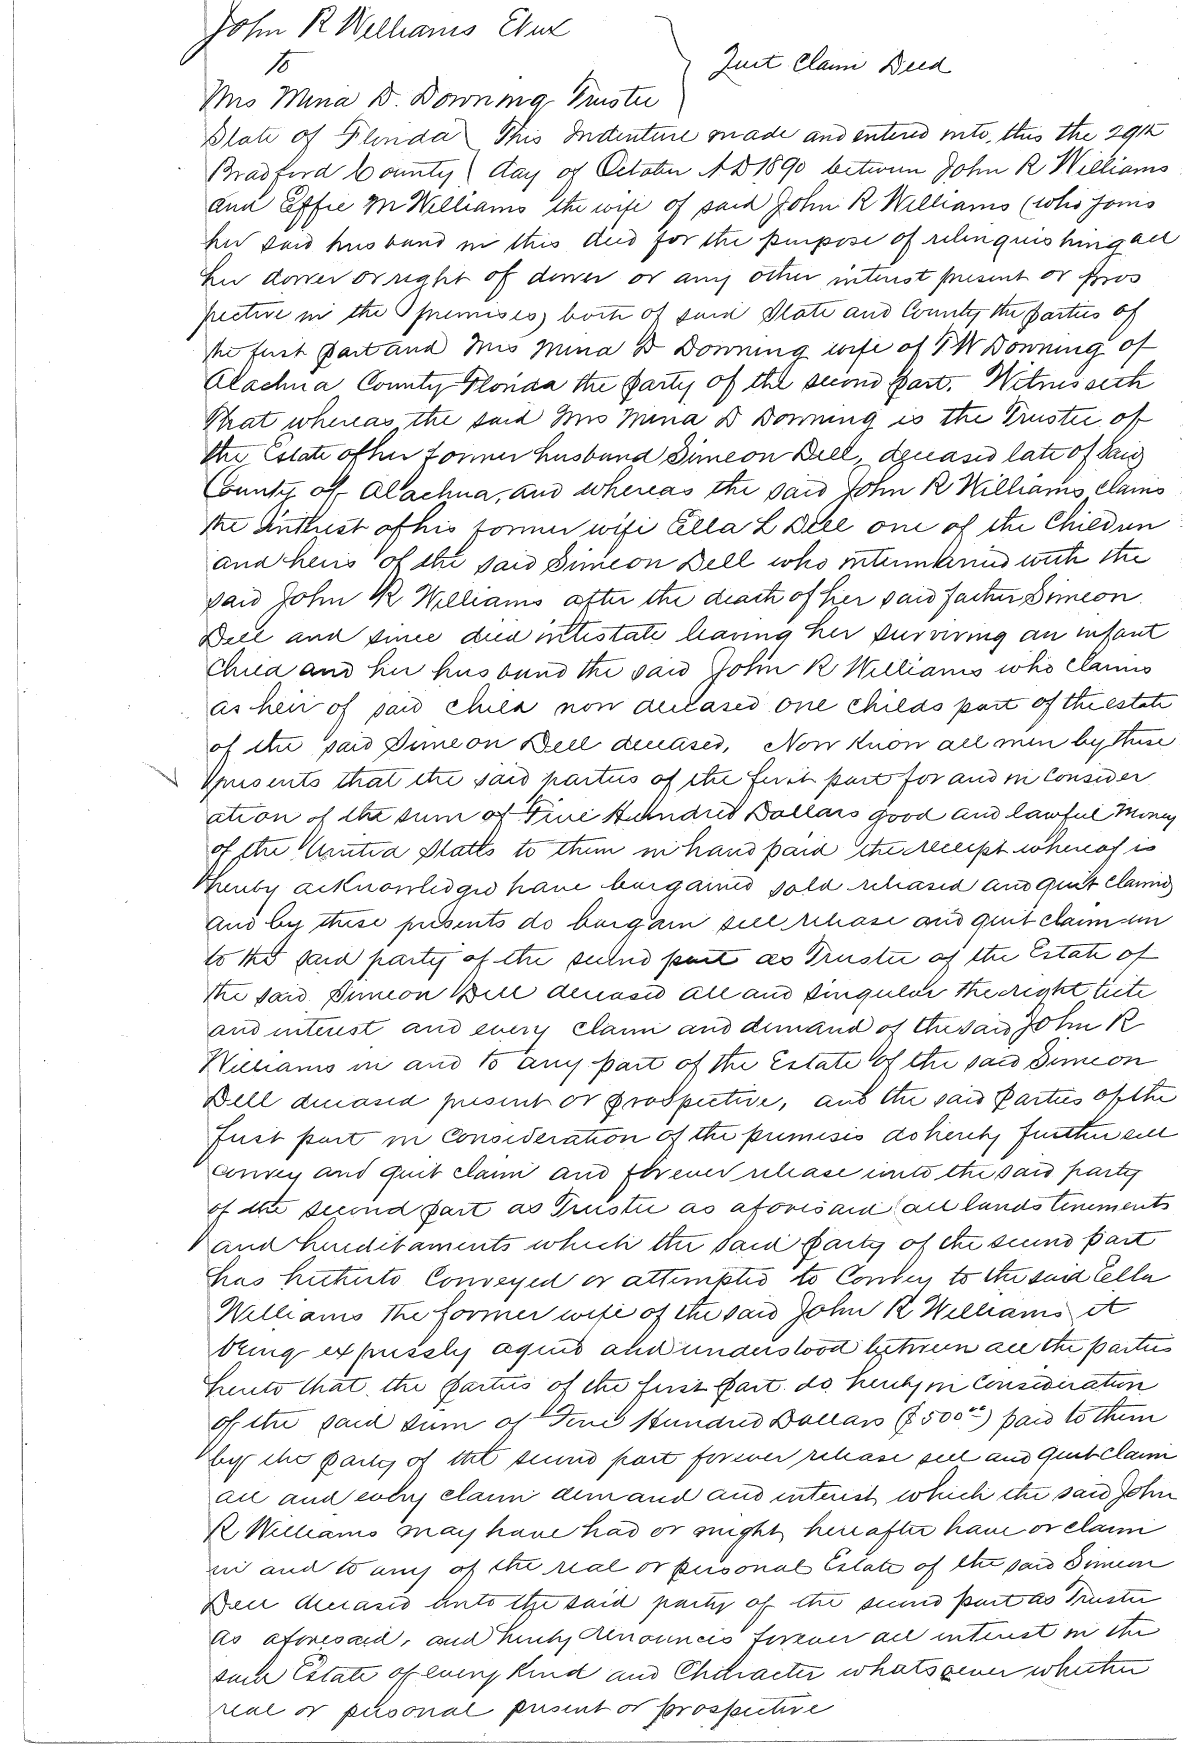 John R Williams Et ux
to
Quit Claim Deed
Mrs Mina D. Downing Trustee
State of Florida This Indenture made and entered into, this the 29th
Bradford County day of October A D 1890 between John R Williams
and Effie M Williams the wife of said John R Williams (who joins
her said husband in this deed for the purpose of relinquishing all
her dower or right of dower or any other interest present or pros
pective in the premises) both of said State and County the parties of
the first part and Mrs Mina D Downing wife of T W Downing of
Alachua County Florida the party of the second part. Witnesseth
That whereas the said Mrs Mina D Downing is the Trustee of
the Estate of her former husband Simeon Dell, deceased late of said
County of Alachua, and whereas the said John R Williams, claims
the Intrest of his former wife Ella L Dell one of the Children
and heirs of the said Simeon Dell who intermarried with the
said John R Williams after the death of her said father Simeon
Dell and since died intestate leaving her surviving an infant
Child and her husband the said John R Williams who claims
as heir of said child now deceased one childs part of the estate
of the said Simeon Dell deceased, Now Know all men by these
presents that the said parties of the first part for and in consider
ation of the sum of Five Hundred Dollars good and lawful Money
of the United States to them in hand paid the receipt whereof is
hereby acknowledged have bargained sold released and quit claimed
and by these presents do bargain sell release and quit claim un
to the said party of the second part as Trustee of the Estate of
the said Simeon Dell deceased all and singular the right title
and interest and every claim and demand of the said John R
Williams in and to any part of the Estate of the said Simeon
Dell deceased present or prospective, and the said Parties of the
first part in consideration of the premises do hereby further sell
convey and quit claim and forever release unto the said party
of the second part as Trustee as aforesaid all lands tenements
and hereditaments which the said party of the second part
has hitherto Conveyed or attempted to Convey to the said Ella
Williams the former wife of the said John R Williams it
being expressly agreed and understood between all the parties
hereto that the parties of the first part do hereby in Consideration
of the said sum of Five Hundred Dollars ($500.00) paid to them
by the party of the second part forever release sell and Quit Claim
all and every claim demand and interest which the said John
R Williams may have had or might hereafter have or claim
in and to any of the real or personal Estate of the said Simeon
Dell deceased unto the said party of the second part as Trustee
as aforesaid, and hereby renounces forever all interest in the
said Estate of every Kind and Character whatsoever whether
real or personal present or prospective